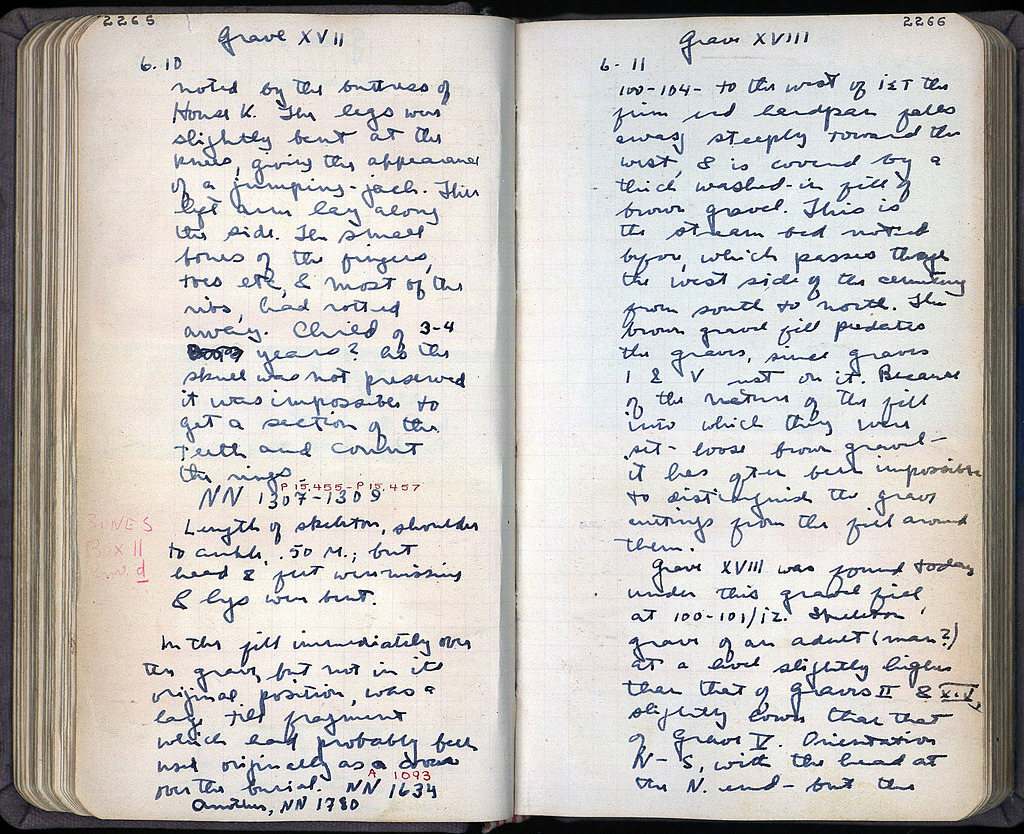 2265
Grave XVII
6.10
noted by the buttress of
House K. The legs were
slightly bent at the
knees, giving the appearance
of a jumping-jack. The
left arm lay along
the side. The small
bones of the fingers,
toes etc, & most of the
ribs, had rotted
away. Child of 3-4
years? As the
skull was not preserved
it was impossible to
get a section of the
teeth and count
the rings.
P 15,455 - P 15,457
NN 1307-1309
BONES
Box II
d
Length of skeleton, shoulder
to ankle, .50 M.; but
head & feet were missing
& legs were bent.
In the fill immediately over
the grave, but not in its
original position, was a
large tile fragment
which had probably been
used originally as a cover
over the burial. NN 1634
A 1093
Another, NN 1780
2266
Grave XVIII
6-11
100-104- to the west of
the
firm red hardpan falls
away steeply toward the
west, & is covered by a
thick washed-in fill of
brown gravel. This is
the stream bed noted
before, which passes through
the west side of the cemetery
from south to north. The
brown gravel fill predates
the graves, since graves
I & V rest on it. Because
of the nature of the fill
into which they were
set - loose brown gravel -
it has often been impossible
to distinguish the grave
cuttings from the fill around
them.
Grave XVIII was found today
under this gravel fill
at 100-101/
Skeleton
grave of an adult (man?)
at a level slightly higher
than that of Graves II & XIV,
slightly lower than that
of Grave V. Orientation
N-S, with the head at
the N. end - but the